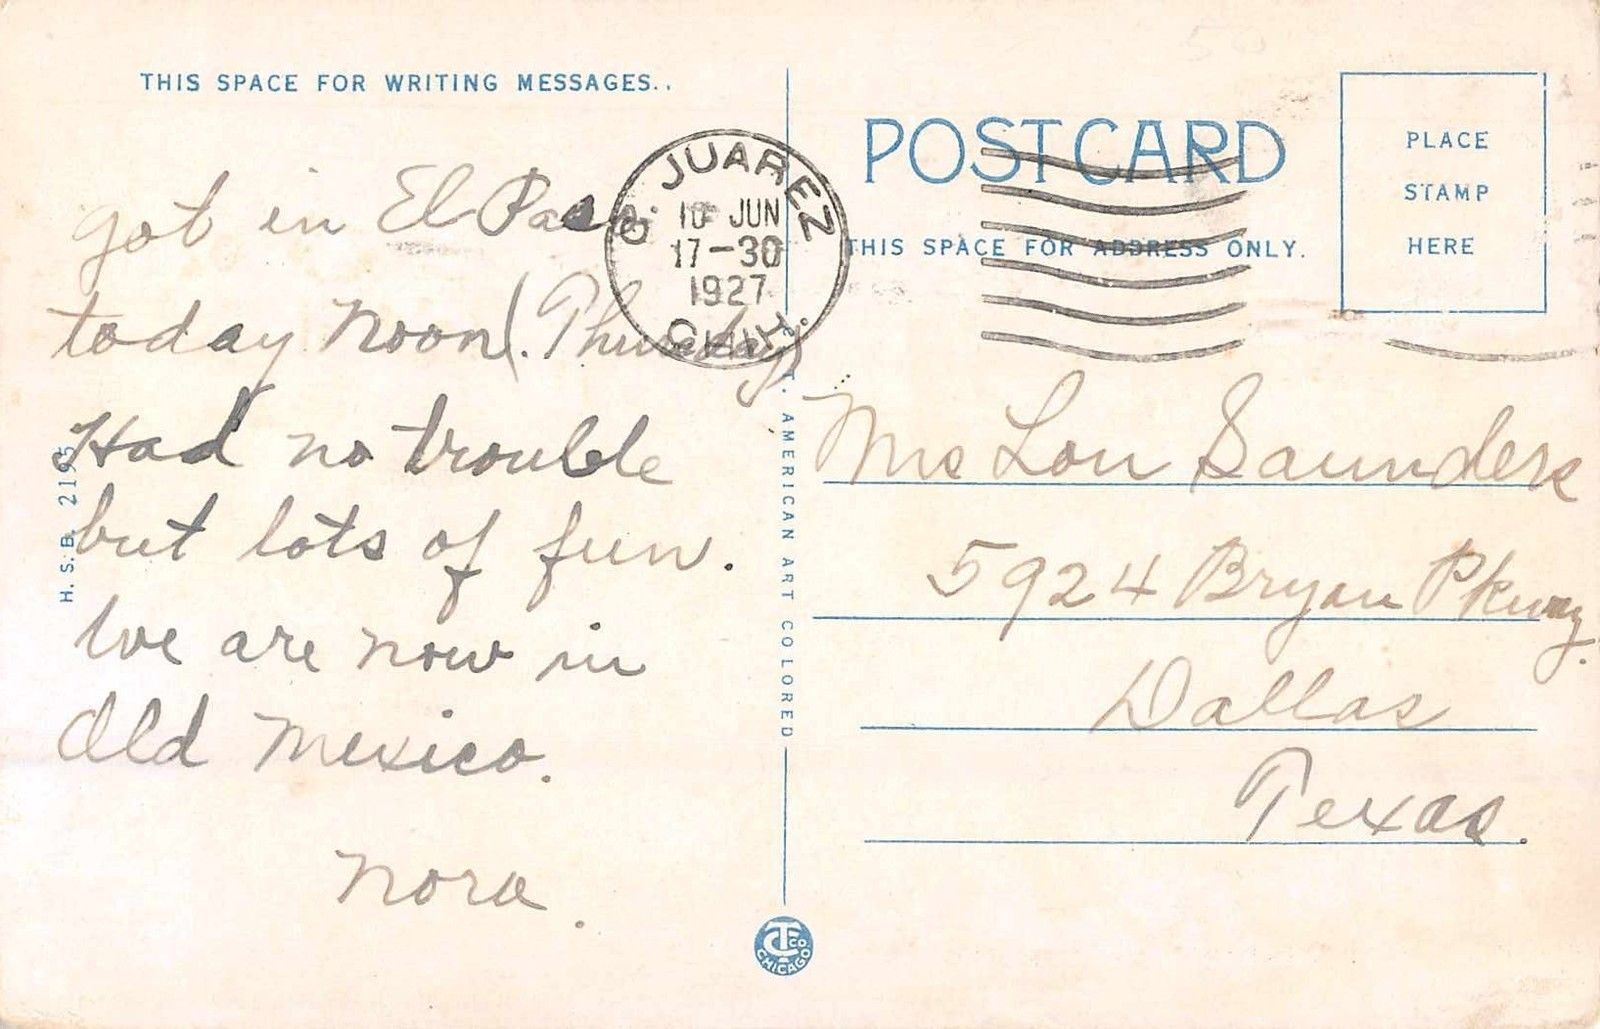 THIS SPACE FOR WRITING MESSAGES..
got in El Paso
today noon (Thursday)
Had no trouble
but lots of fun.
We are now in
Old Mexico.
Nora.
H.S.B. 2195
C. JUAREZ
10 JUN
17-30
1927
CHIH.
C.T. AMERICAN ART COLORED
POST CARD
THIS SPACE FOR ADDRESS ONLY.
PLACE
STAMP
HERE
Mrs Lou Saunders
5924 Bryan Pkway.
Dallas
Texas.
CT CO
CHICAGO